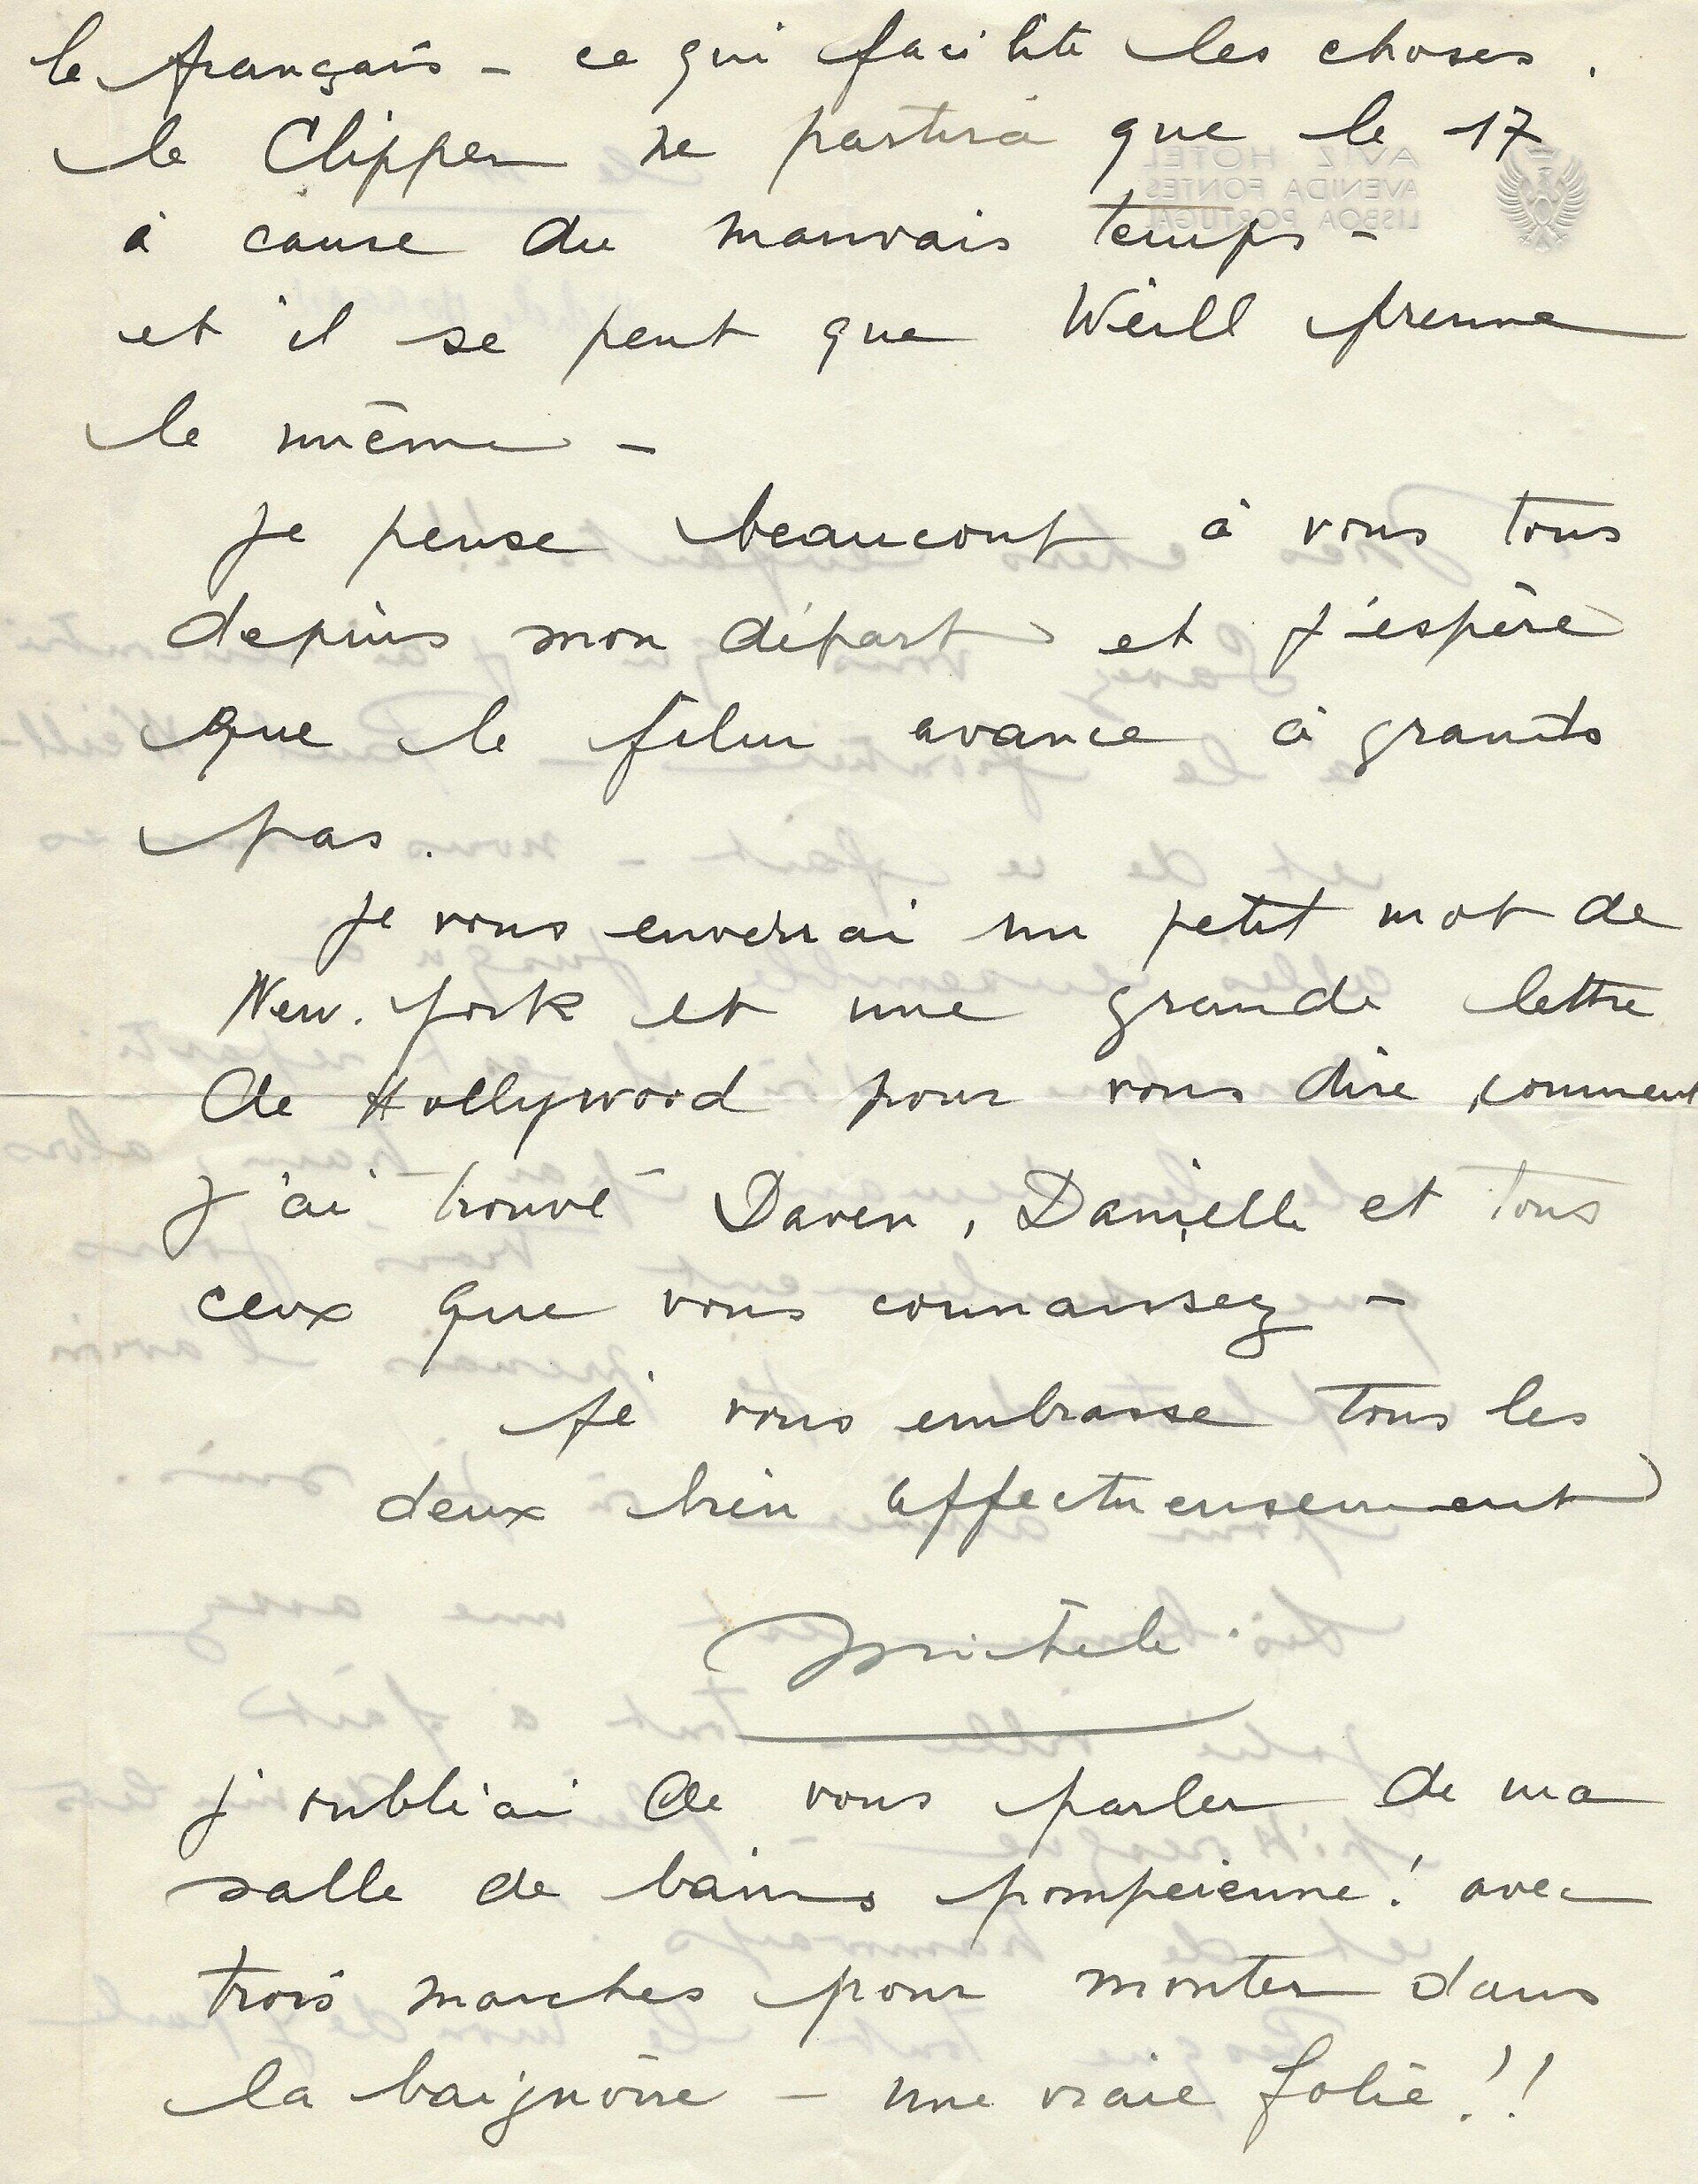 le français - ce qui facilite les choses.
le Clipper ne partira que le 17
AVIZ HOTEL
AVENIDA FONTES
LISBOA PORTUGAL
à cause du mauvais temps -
et il se peut que Weill prenne
le même -
Je pense beaucoup à vous tous
depuis mon départ et j'espère
que le film avance à grands
pas.
Je vous enverrai un petit mot de
New. York et une grande lettre
de Hollywood pour vous dire comment
j'ai trouvé Daven, Danielle et tous
ceux que vous connaissez -
Je vous embrasse tous les
deux bien affectueusement
Michèle.
j'oubliai de vous parler de ma
salle de bains pompeienne! avec
trois marches pour monter dans
la baignoire - une vraie folie!!